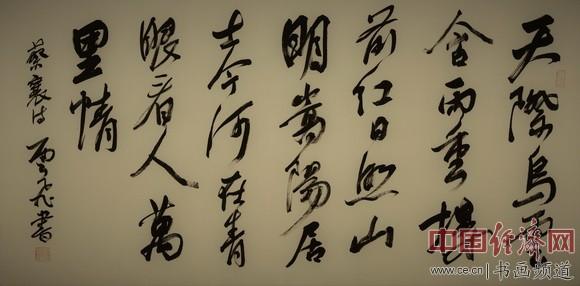 天際烏雲
含雨重樓
前紅日照山
明嵩陽居
士今何在青
眼看人萬
里情
蔡襄诗 雲飛書
中国经济网
www.ce.cn|书画频道